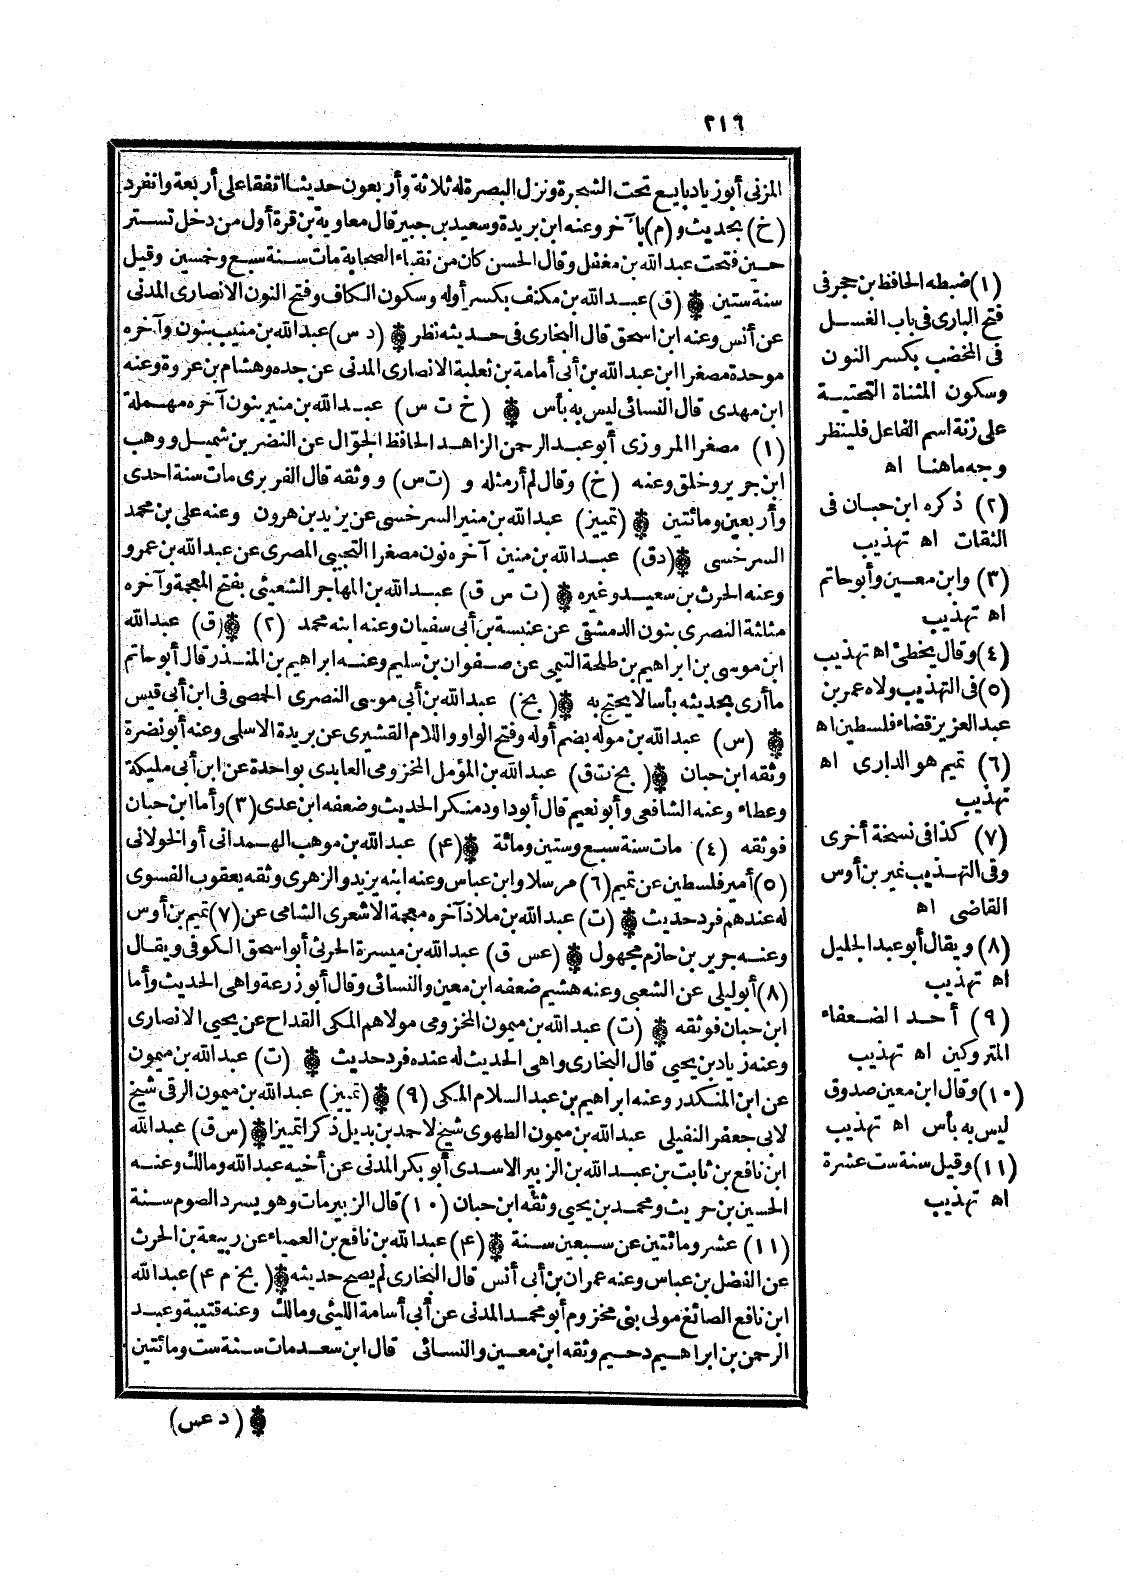 ٢١٦
المزنى أبو زياد بايع تحت الشجرة ونزل البصرة له ثلاثة وأربعون حديثا اتفقا على أربعة وانفرد
(خ) بحديث و (م) بآخر وعنه ابن بريدة وسعيد بن جبير قال معاوية بن قرة أول من دخل تستر
حين فتحت عبد الله بن مغفل وقال الحسن كان من نقباء الصحابة مات سنة سبع وخمسين وقيل
سنة ستين * (ق) عبد الله بن مكنف بكسر أوله وسكون الكاف وفتح النون الانصارى المدنى
عن أنس وعنه ابن اسحق قال البخارى فى حديثه نظر * (د س) عبد الله بن منيب بنون وآخره
موحدة مصغرا ابن عبد الله بن أبى أمامة بن ثعلبة الانصارى المدنى عن جده وهشام بن عروة وعنه
ابن مهدى قال النسائى ليس به بأس * (خ ت س) عبد الله بن منير بنون آخره مهملة
(١) مصغرا المروزى أبو عبد الرحمن الزاهد الحافظ الجوّال عن النضر بن شميل ووهب
ابن جرير وخلق وعنه (خ) وقال لم أر مثله و (ت س) ووثقه قال الفربرى مات سنة احدى
وأربعين ومائتين * (تمييز) عبد الله بن منير السرخسى عن يزيد بن هرون وعنه على بن محمد
السرخسى * (د ق) عبد الله بن منين آخره نون مصغرا التجيبى المصرى عن عبد الله بن عمرو
وعنه الحرث بن سعيد وغيره * (ت س ق) عبد الله بن المهاجر الشعيثى بفتح المعجمة وآخره
مثلثة النصرى بنون الدمشقى عن عنبسة بن أبى سفيان وعنه ابنه محمد (٢) * (ق) عبد الله
ابن موسى بن ابراهيم بن طلحة التيمى عن صفوان بن سليم وعنه ابراهيم بن المنذر قال أبو حاتم
ما أرى بحديثه بأسا لا يحتج به * (بخ) عبد الله بن أبى موسى النصرى الحمصى فى ابن أبى قيس
* (س) عبد الله بن موله بضم أوله وفتح الواو واللام القشيرى عن بريدة الاسلمى وعنه أبو نضرة
وثقه ابن حبان * (بخ ت ق) عبد الله بن المؤمل المخزومى العابدى بواحدة عن ابن أبى مليكة
وعطاء وعنه الشافعى وأبو نعيم قال أبو داود منكر الحديث وضعفه ابن عدى (٣) وأما ابن حبان
فوثقه (٤) مات سنة سبع وستين ومائة * (٤) عبد الله بن موهب الهمدانى أو الخولانى
(٥) أمير فلسطين عن تميم (٦) مرسلا وابن عباس وعنه ابنه يزيد والزهرى وثقه يعقوب الفسوى
له عندهم فرد حديث * (ت) عبد الله بن ملاذ آخره معجمة الاشعرى الشامى عن (٧) تميم بن أوس
وعنه جرير بن حازم مجهول * (عس ق) عبد الله بن ميسرة الحرثى أبو اسحق الكوفى ويقال
(٨) أبو ليلى عن الشعبى وعنه هشيم ضعفه ابن معين والنسائى وقال أبو زرعة واهى الحديث وأما
ابن حبان فوثقه * (ت) عبد الله بن ميمون المخزومى مولاهم المكى القداح عن يحيى الانصارى
وعنه زياد بن يحيى قال البخارى واهى الحديث له عنده فرد حديث * (ت) عبد الله بن ميمون
عن ابن المنكدر وعنه ابراهيم بن عبد السلام المكى (٩) * (تمييز) عبد الله بن ميمون الرقى شيخ
لابى جعفر النفيلى عبد الله بن ميمون الطهوى شيخ لاحمد بن بديل ذكرا تمييزا * (س ق) عبد الله
ابن نافع بن ثابت بن عبد الله بن الزبير الاسدى أبو بكر المدنى عن أخيه عبد الله ومالك وعنه
الحسين بن حريث ومحمد بن يحيى وثقه ابن حبان (١٠) قال الزبير مات وهو يسرد الصوم سنة
(١١) عشر ومائتين عن سبعين سنة * (٤) عبد الله بن نافع بن العمياء عن ربيعة بن الحرث
عن الفضل بن عباس وعنه عمران بن أبى أنس قال البخارى لم يصح حديثه * (بخ م ٤) عبد الله
ابن نافع الصائغ مولى بنى مخزوم أبو محمد المدنى عن أبى أسامة الليثى ومالك وعنه قتيبة وعبد
الرحمن بن ابراهيم دحيم وثقه ابن معين والنسائى قال ابن سعد مات سنة ست ومائتين
* (د عس)
(١) ضبطه الحافظ بن حجر فى
فتح البارى فى باب الغسل
فى المخضب بكسر النون
وسكون المثناة التحتية
على زنة اسم الفاعل فلينظر
وجه ما هنا اه
(٢) ذكره ابن حبان فى
الثقات اه تهذيب
(٣) وابن معين وأبو حاتم
اه تهذيب
(٤) وقال يخطئ اه تهذيب
(٥) فى التهذيب ولاه عمر بن
عبد العزيز قضاء فلسطين اه
(٦) تميم هو الدارى اه
تهذيب
(٧) كذا فى نسخة أخرى
وفى التهذيب نمير بن أوس
القاضى اه
(٨) ويقال أبو عبد الجليل
اه تهذيب
(٩) أحد الضعفاء
المتروكين اه تهذيب
(١٠) وقال ابن معين صدوق
ليس به بأس اه تهذيب
(١١) وقيل سنة ست عشرة
اه تهذيب